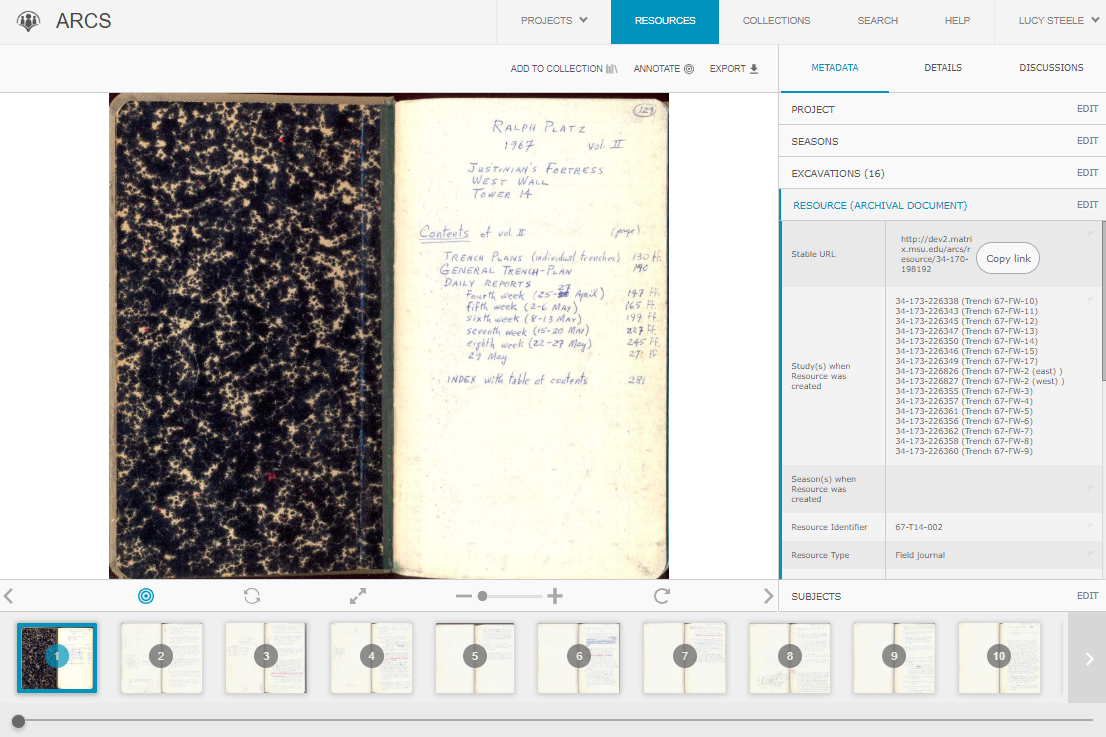 ARCS
PROJECTS
RESOURCES
COLLECTIONS
SEARCH
HELP
LUCY STEELE
ADD TO COLLECTION
ANNOTATE
EXPORT
METADATA
DETAILS
DISCUSSIONS
129
RALPH PLATZ
1967 vol. II
JUSTINIAN'S FORTRESS
WEST WALL
TOWER 14
Contents of vol. II (page)
TRENCH PLANS (individual trenches) 130 ff.
GENERAL TRENCH-PLAN 140
DAILY REPORTS
fourth week (25-27 April) 147 ff.
fifth week (2-6 May) 165 ff.
sixth week (8-13 May) 199 ff.
seventh week (15-20 May) 227 ff.
eighth week (22-27 May) 245 ff.
29 May ff
INDEX with table of contents 281
PROJECT EDIT
SEASONS EDIT
EXCAVATIONS (16) EDIT
RESOURCE (ARCHIVAL DOCUMENT) EDIT
Stable URL
http://dev2.matri
x.msu.edu/arcs/r
esource/34-170-
198192
Copy link
Study(s) when
Resource was
created
34-173-226338 (Trench 67-FW-10)
34-173-226343 (Trench 67-FW-11)
34-173-226345 (Trench 67-FW-12)
34-173-226347 (Trench 67-FW-13)
34-173-226350 (Trench 67-FW-14)
34-173-226346 (Trench 67-FW-15)
34-173-226349 (Trench 67-FW-17)
34-173-226826 (Trench 67-FW-2 (east) )
34-173-226827 (Trench 67-FW-2 (west) )
34-173-226355 (Trench 67-FW-3)
34-173-226357 (Trench 67-FW-4)
34-173-226361 (Trench 67-FW-5)
34-173-226356 (Trench 67-FW-6)
34-173-226362 (Trench 67-FW-7)
34-173-226358 (Trench 67-FW-8)
34-173-226360 (Trench 67-FW-9)
Season(s) when
Resource was
created
Resource Identifier 67-T14-002
Resource Type Field journal
SUBJECTS EDIT
1
2
3
4
5
6
7
8
9
10